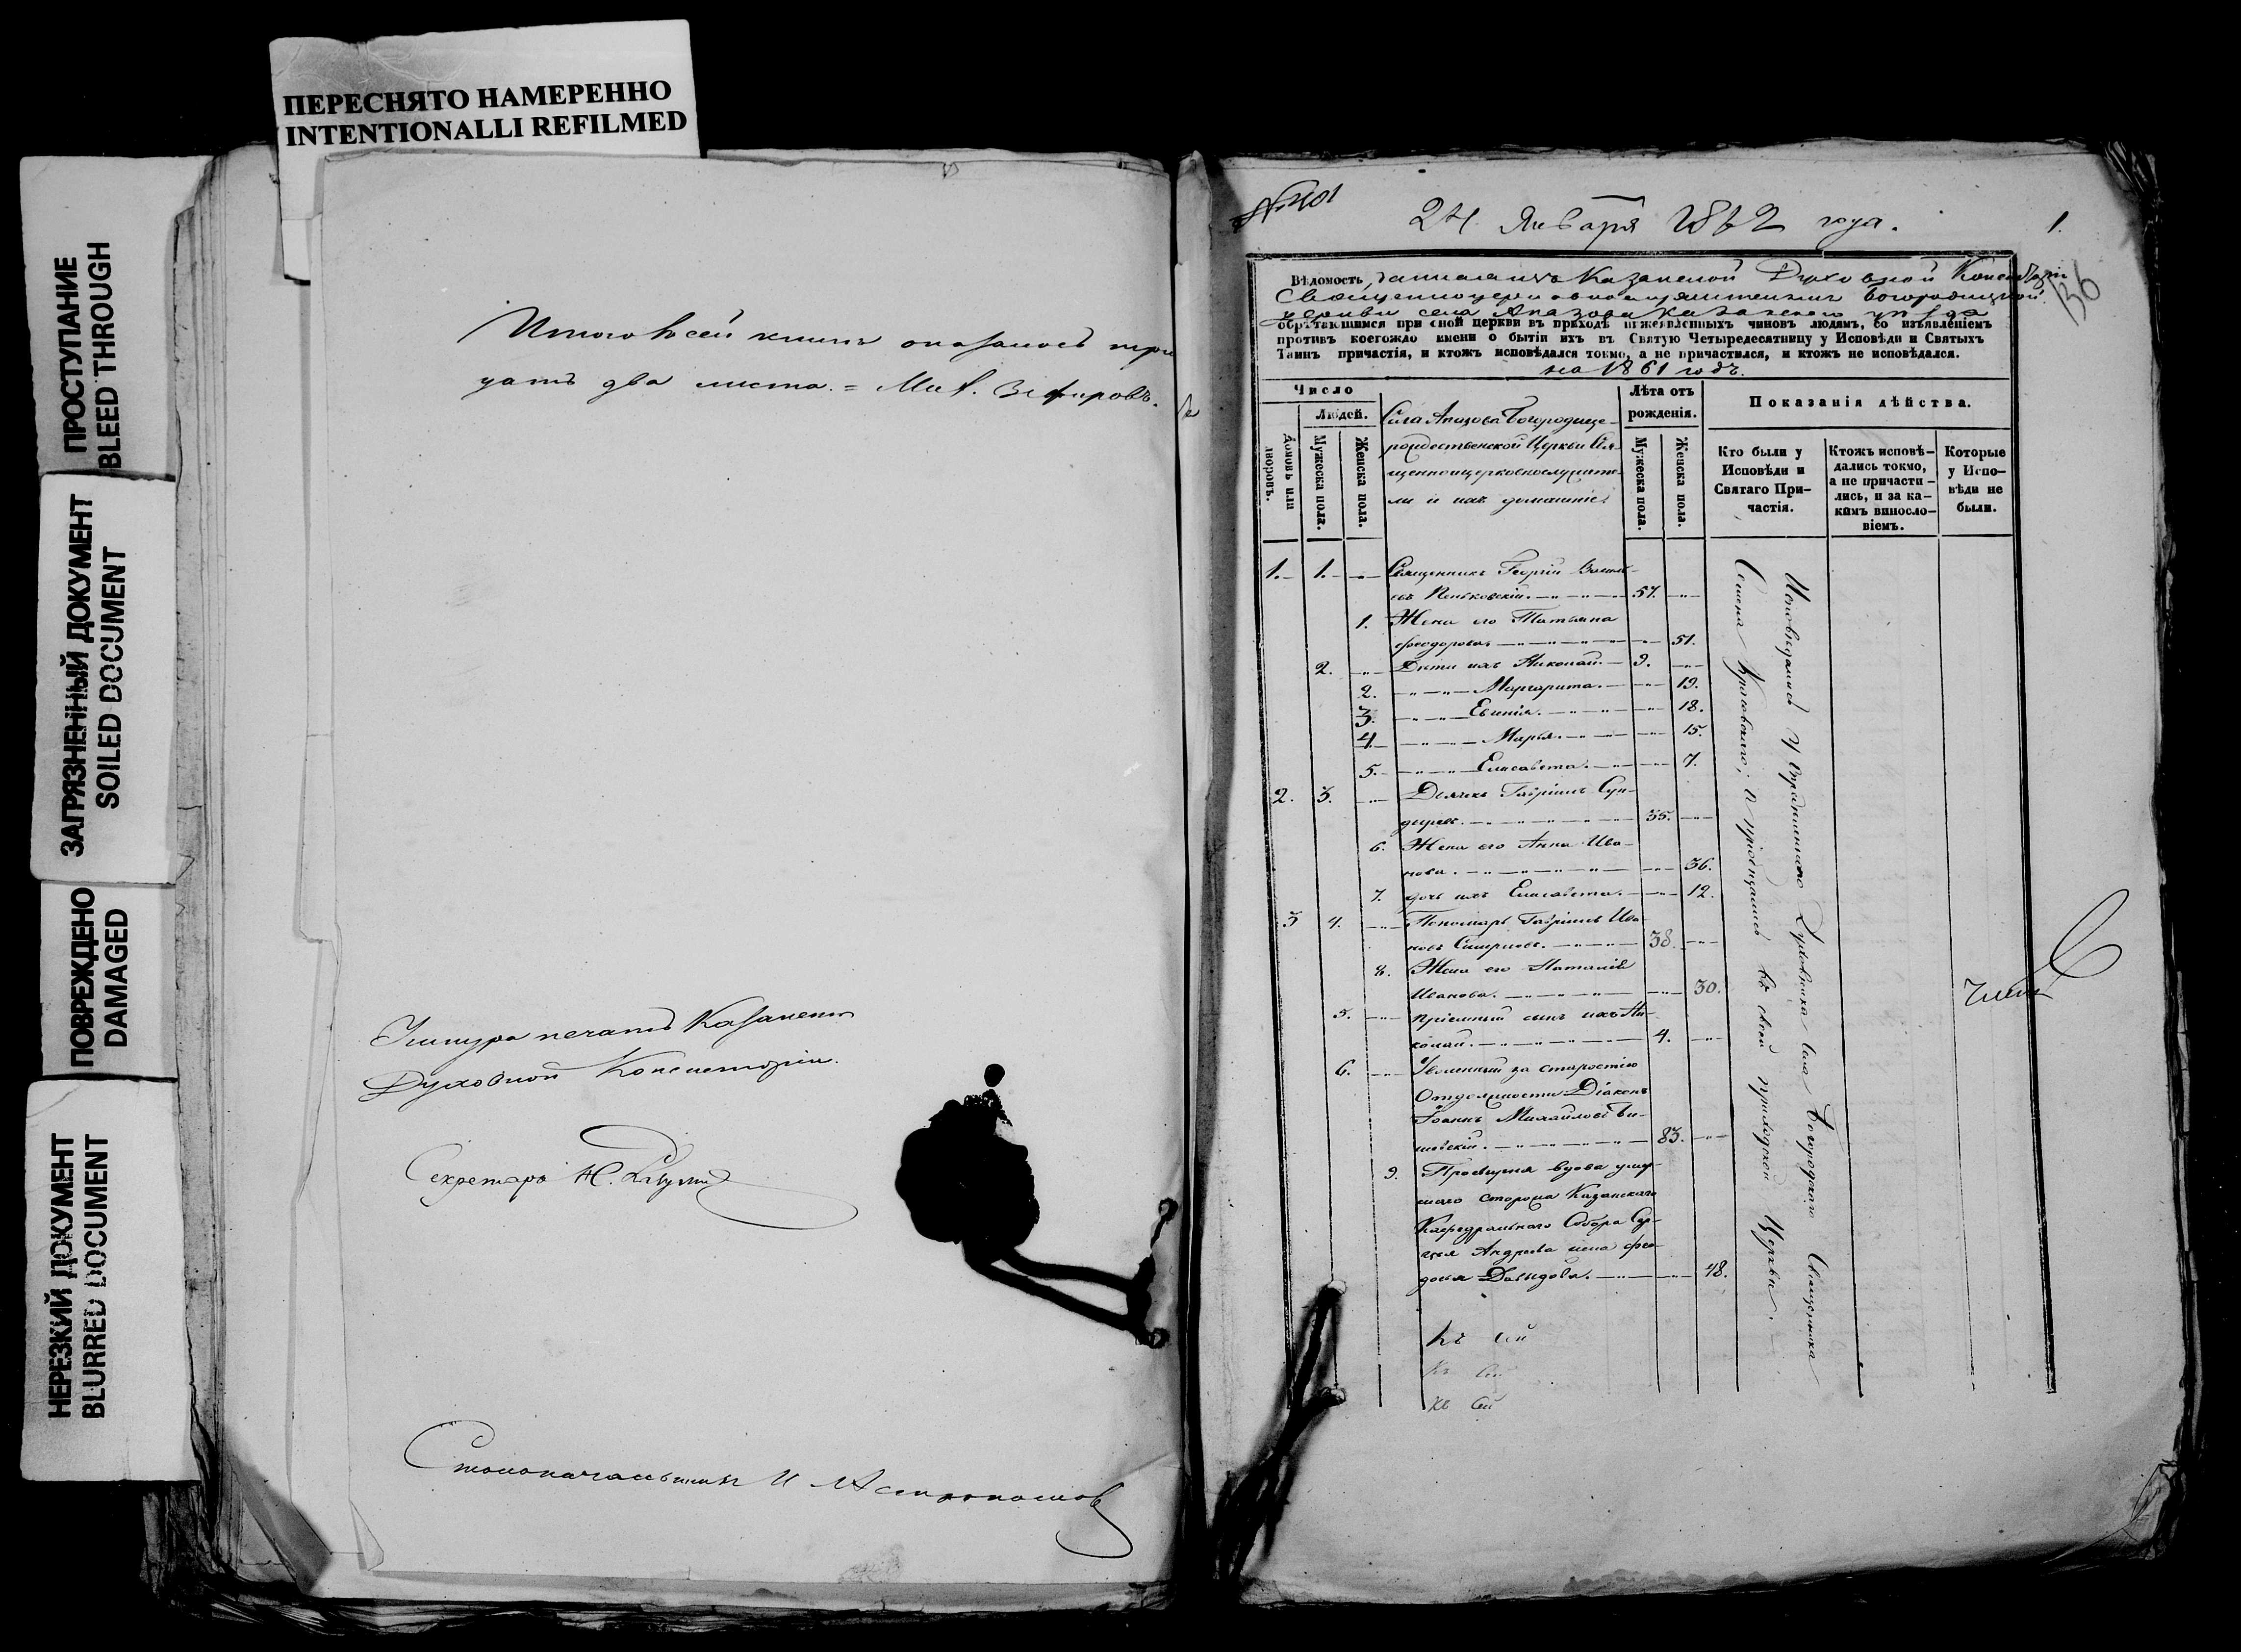 ПЕРЕСНЯТО НАМЕРЕННО
INTENTIONALLI REFILMED
ПРОСТУПАНИЕ
BLEED THROUGH
ЗАГРЯЗНЕННЫЙ ДОКУМЕНТ
SOILED DOCUMENT
ПОВРЕЖДЕНО
DAMAGED
НЕРЕЗКИЙ ДОКУМЕНТ
BLURRED DOCUMENT
Итого въ сей книгѣ оказалось три
цать два листа. = Мих. Зефировъ.
печать Казанской
Духовной Консисторіи.
Секретарь Н.
Столоначальникъ И
24 Января 1862 года.
1.
136
Вѣдомость, данная изъ Казанской Духовной Консисторіи
Священноцерковнослужителямъ Богородицкой
церкви села Апазова Казанского уѣзда
обрѣтающимся при сной церкви въ приходѣ нижеявленныхъ чиновъ людямъ, со изъявленіемъ
противъ коегождо имени о бытіи ихъ въ Святую Четыредесятницу у Исповѣди и Святыхъ
Таинъ причастія, и ктожъ исповѣдался токмо, а не причастился, и ктожъ не исповѣдался.
на 1861 годъ.
Число
Людей.
Домовъ или дворовъ.
Мужеска пола.
Женска пола.
Села Апазова Богородице-
рождественской Церкви Свя-
щенноцерковнослужите-
ли и ихъ домашніе
Лѣта отъ
рожденія.
Мужеска пола.
Женска пола.
Показанія дѣйства.
Кто были у
Исповѣди и
Святаго При-
частія.
Ктожъ исповѣ-
дались токмо,
а не причасти-
лись, и за ка-
кимъ винословіемъ.
Которые
у Испо-
вѣди не
были.
1. 1. Священникъ Георгій Василь-
евъ Пеньковскій. 57.
1. Жена его Татьяна
Феодорова 51.
2. Дѣти ихъ Николай. 9.
2. Маргарита. 19.
3. Евгенія. 18.
4. Марья. 15.
5. Елисавета. 7.
2. 3. Дьячекъ Гавріилъ Сун-
дыревъ. 35.
6. Жена его Анна Ива-
нова. 36.
7. дочь ихъ Елисавета. 12.
3 4. Пономарь Гавріилъ Ива-
новъ Смирновъ. 38.
8. Жена его Наталія
Иванова. 30.
5. Пріемный сынъ ихъ Ни-
колай. 4.
6. Уволенный за старостію
От должности Діаконъ
Іоаннъ Михайловъ
83.
9. Просвирня вдова умер-
шаго сторожа Казанскаго
Кафедральнаго Собора Сер-
гея Андреева жена Фео-
досья Давыдова. 48.
Исповѣдались у Духовника села Богородскаго Священника
и пріобщались въ своей приходской Церкви.
къ сей
къ сей
къ сей